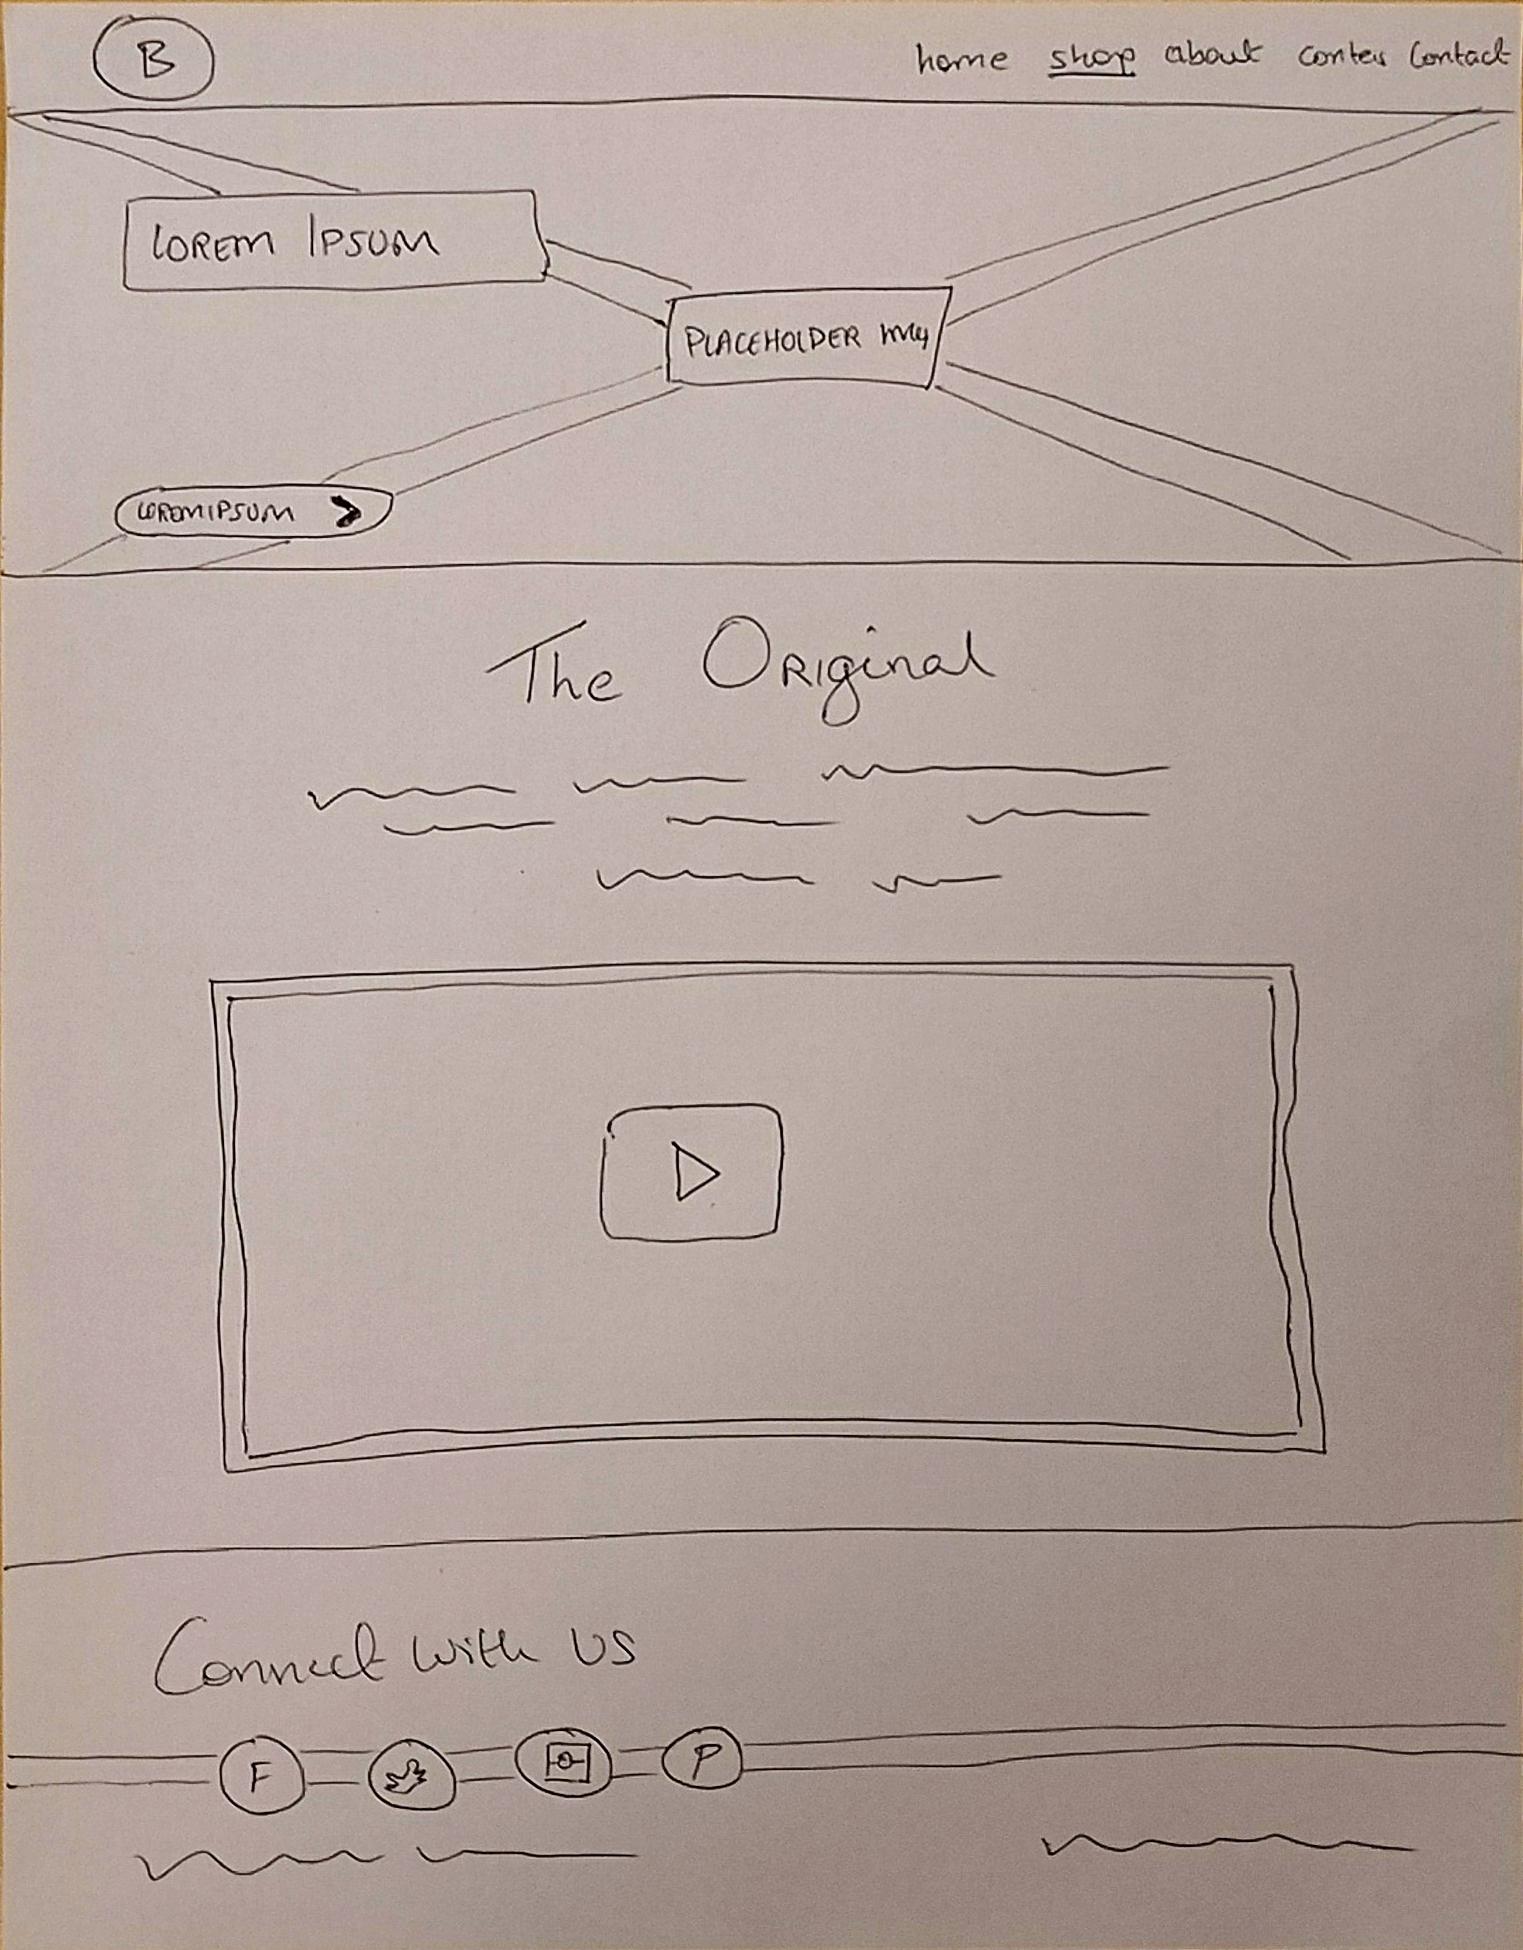 B
home shop about Contact
LOREM IPSUM
PLACEHOLDER
LOREMIPSUM
The Original
Connect with us
F P